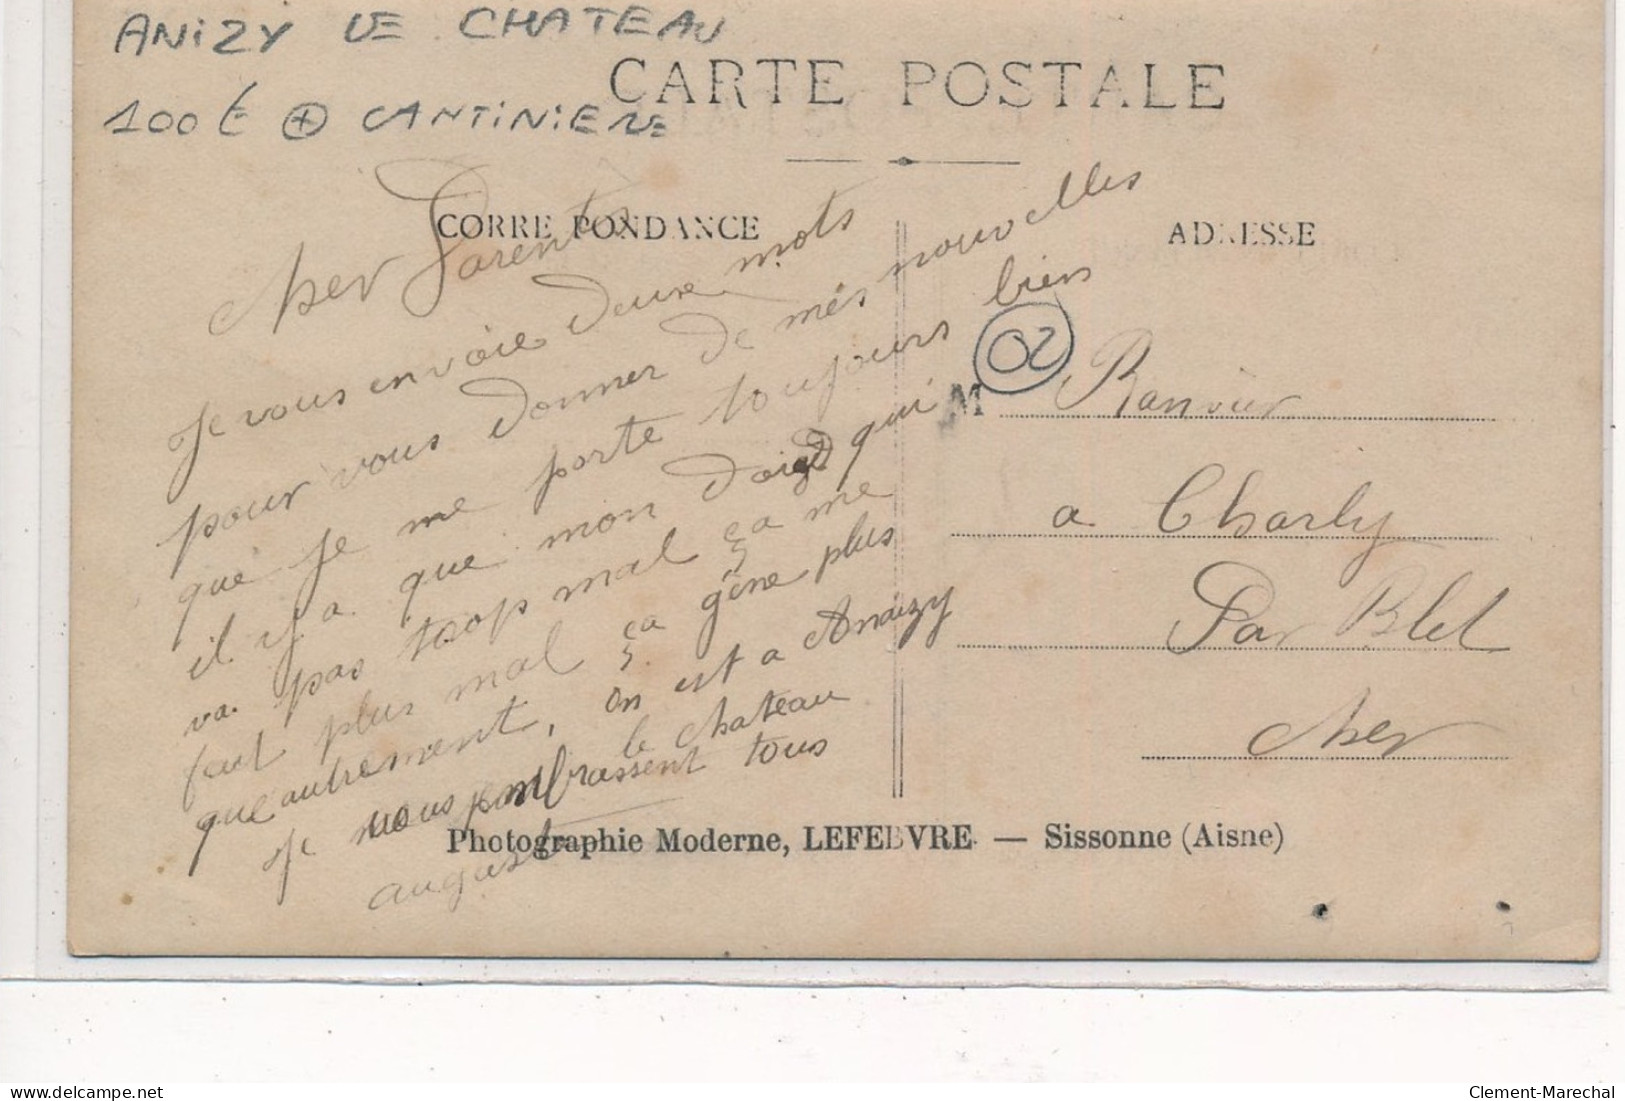 ANiZY LE CHATEAU
100€ + CANTiNiERE
CARTE POSTALE
CORRESPONDANCE
ADRESSE
cher Parents
Je vous envoie deux mots
pour vous donner de més nouvelles
que je me porte toujours bien
il y a que mon doigt qui
va pas troop mal ça me
fait plus mal ça gène plus
que autrement, on est a Anizy
le chateau
Je vous embrassent tous
auguste
02
M Ranvier
a Charly
Par Blet
cher
Photographie Moderne, LEFEBVRE — Sissonne (Aisne)
delcampe.net
Clement-Marechal